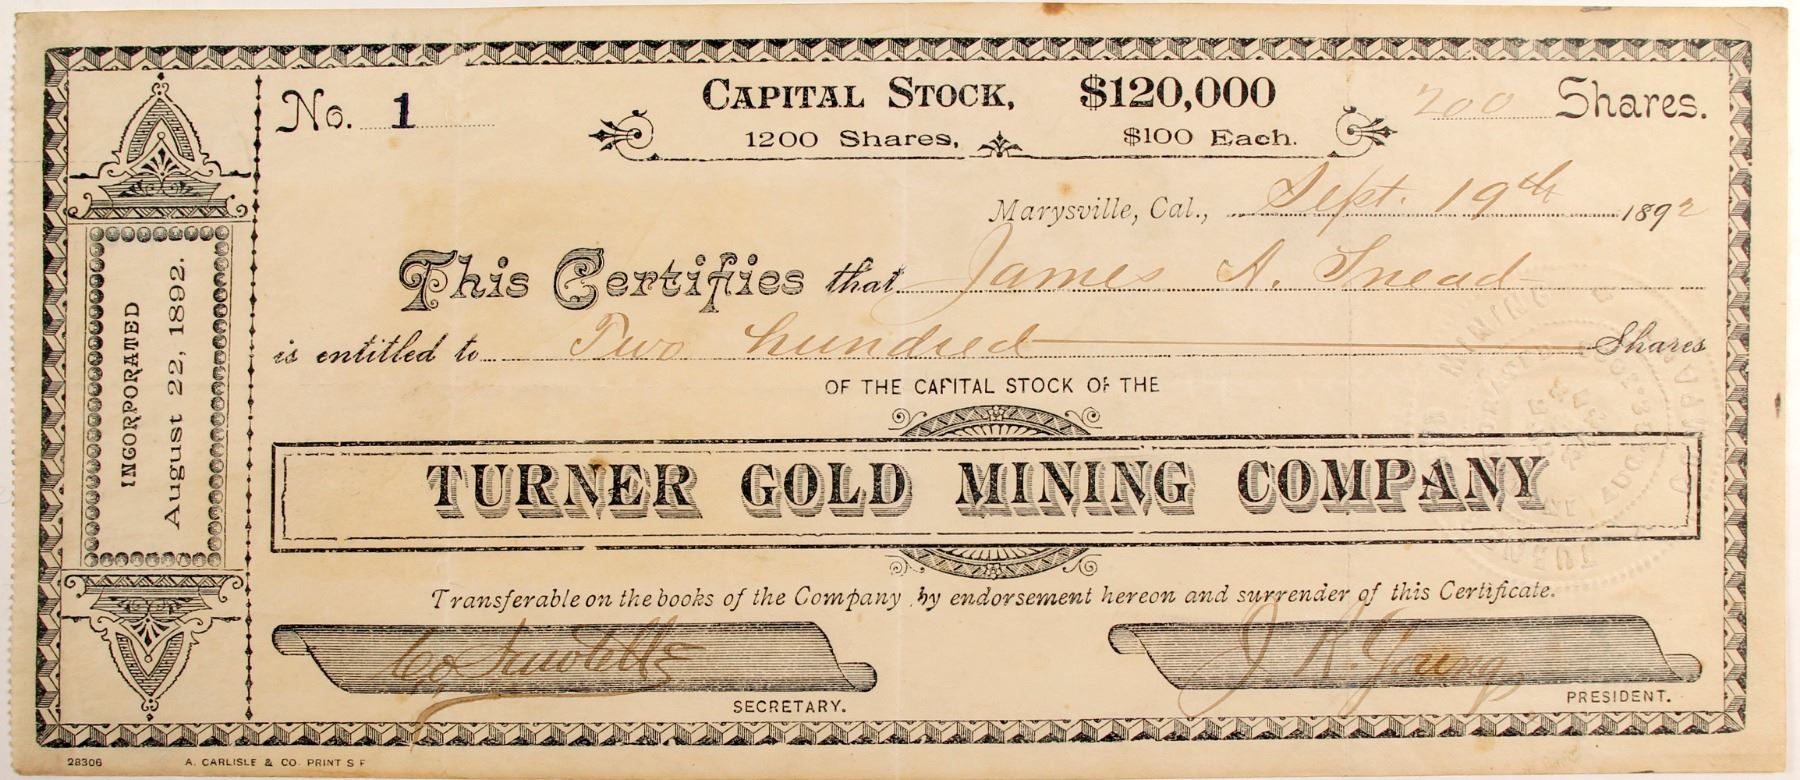 No. 1
CAPITAL STOCK, $120,000
1200 Shares, $100 Each.
200 Shares.
Marysville, Cal., Sept. 19th 1892
This Certifies that James A. Snead
is entitled to Two hundred Shares
OF THE CAPITAL STOCK OF THE
TURNER GOLD MINING COMPANY
Transferable on the books of the Company by endorsement hereon and surrender of this Certificate.
J. R. Young
SECRETARY.
PRESIDENT.
INCORPORATED
August 22, 1892.
28306
A. CARLISLE & CO. PRINT S F